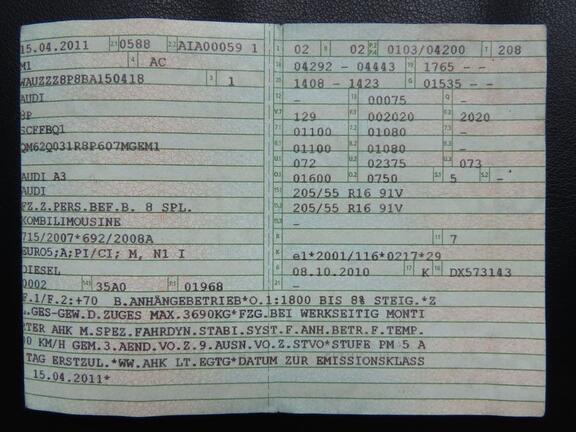 15.04.2011 2.1 0588 2.2 AIA00059 1
M1 4 AC
WAUZZZ8P8BA150418 3 1
AUDI
8P
SCFFBQ1
QM62Q031R8P607MGEM1
AUDI A3
AUDI
FZ.Z.PERS.BEF.B. 8 SPL.
KOMBILIMOUSINE
715/2007*692/2008A
EURO5;A;PI/CI; M, N1 I
DIESEL
0002 35A0 P.1 01968
02 02 0103/04200 T 208
04292 - 04443 1765 - -
1408 - 1423 G 01535 - -
- 13 00075 Q -
V.7 129 002020 2020
01100 01080 -
01100 01080 -
U.1 072 02375 U.3 073
O.1 01600 0750 S.1 5 S.2 -
205/55 R16 91V
205/55 R16 91V
-
- 11 7
K e1*2001/116*0217*29
6 08.10.2010 17 K 16 DX573143
21 -
F.1/F.2:+70 B.ANHÄNGEBETRIEB*O.1:1800 BIS 8% STEIG.*Z
.GES-GEW.D.ZUGES MAX.3690KG*FZG.BEI WERKSEITIG MONTI
RTER AHK M.SPEZ.FAHRDYN.STABI.SYST.F.ANH.BETR.F.TEMP.
00 KM/H GEM.3.AEND.VO.Z.9.AUSN.VO.Z.STVO*STUFE PM 5 A
TAG ERSTZUL.*WW.AHK LT.EGTG*DATUM ZUR EMISSIONSKLASS
15.04.2011*